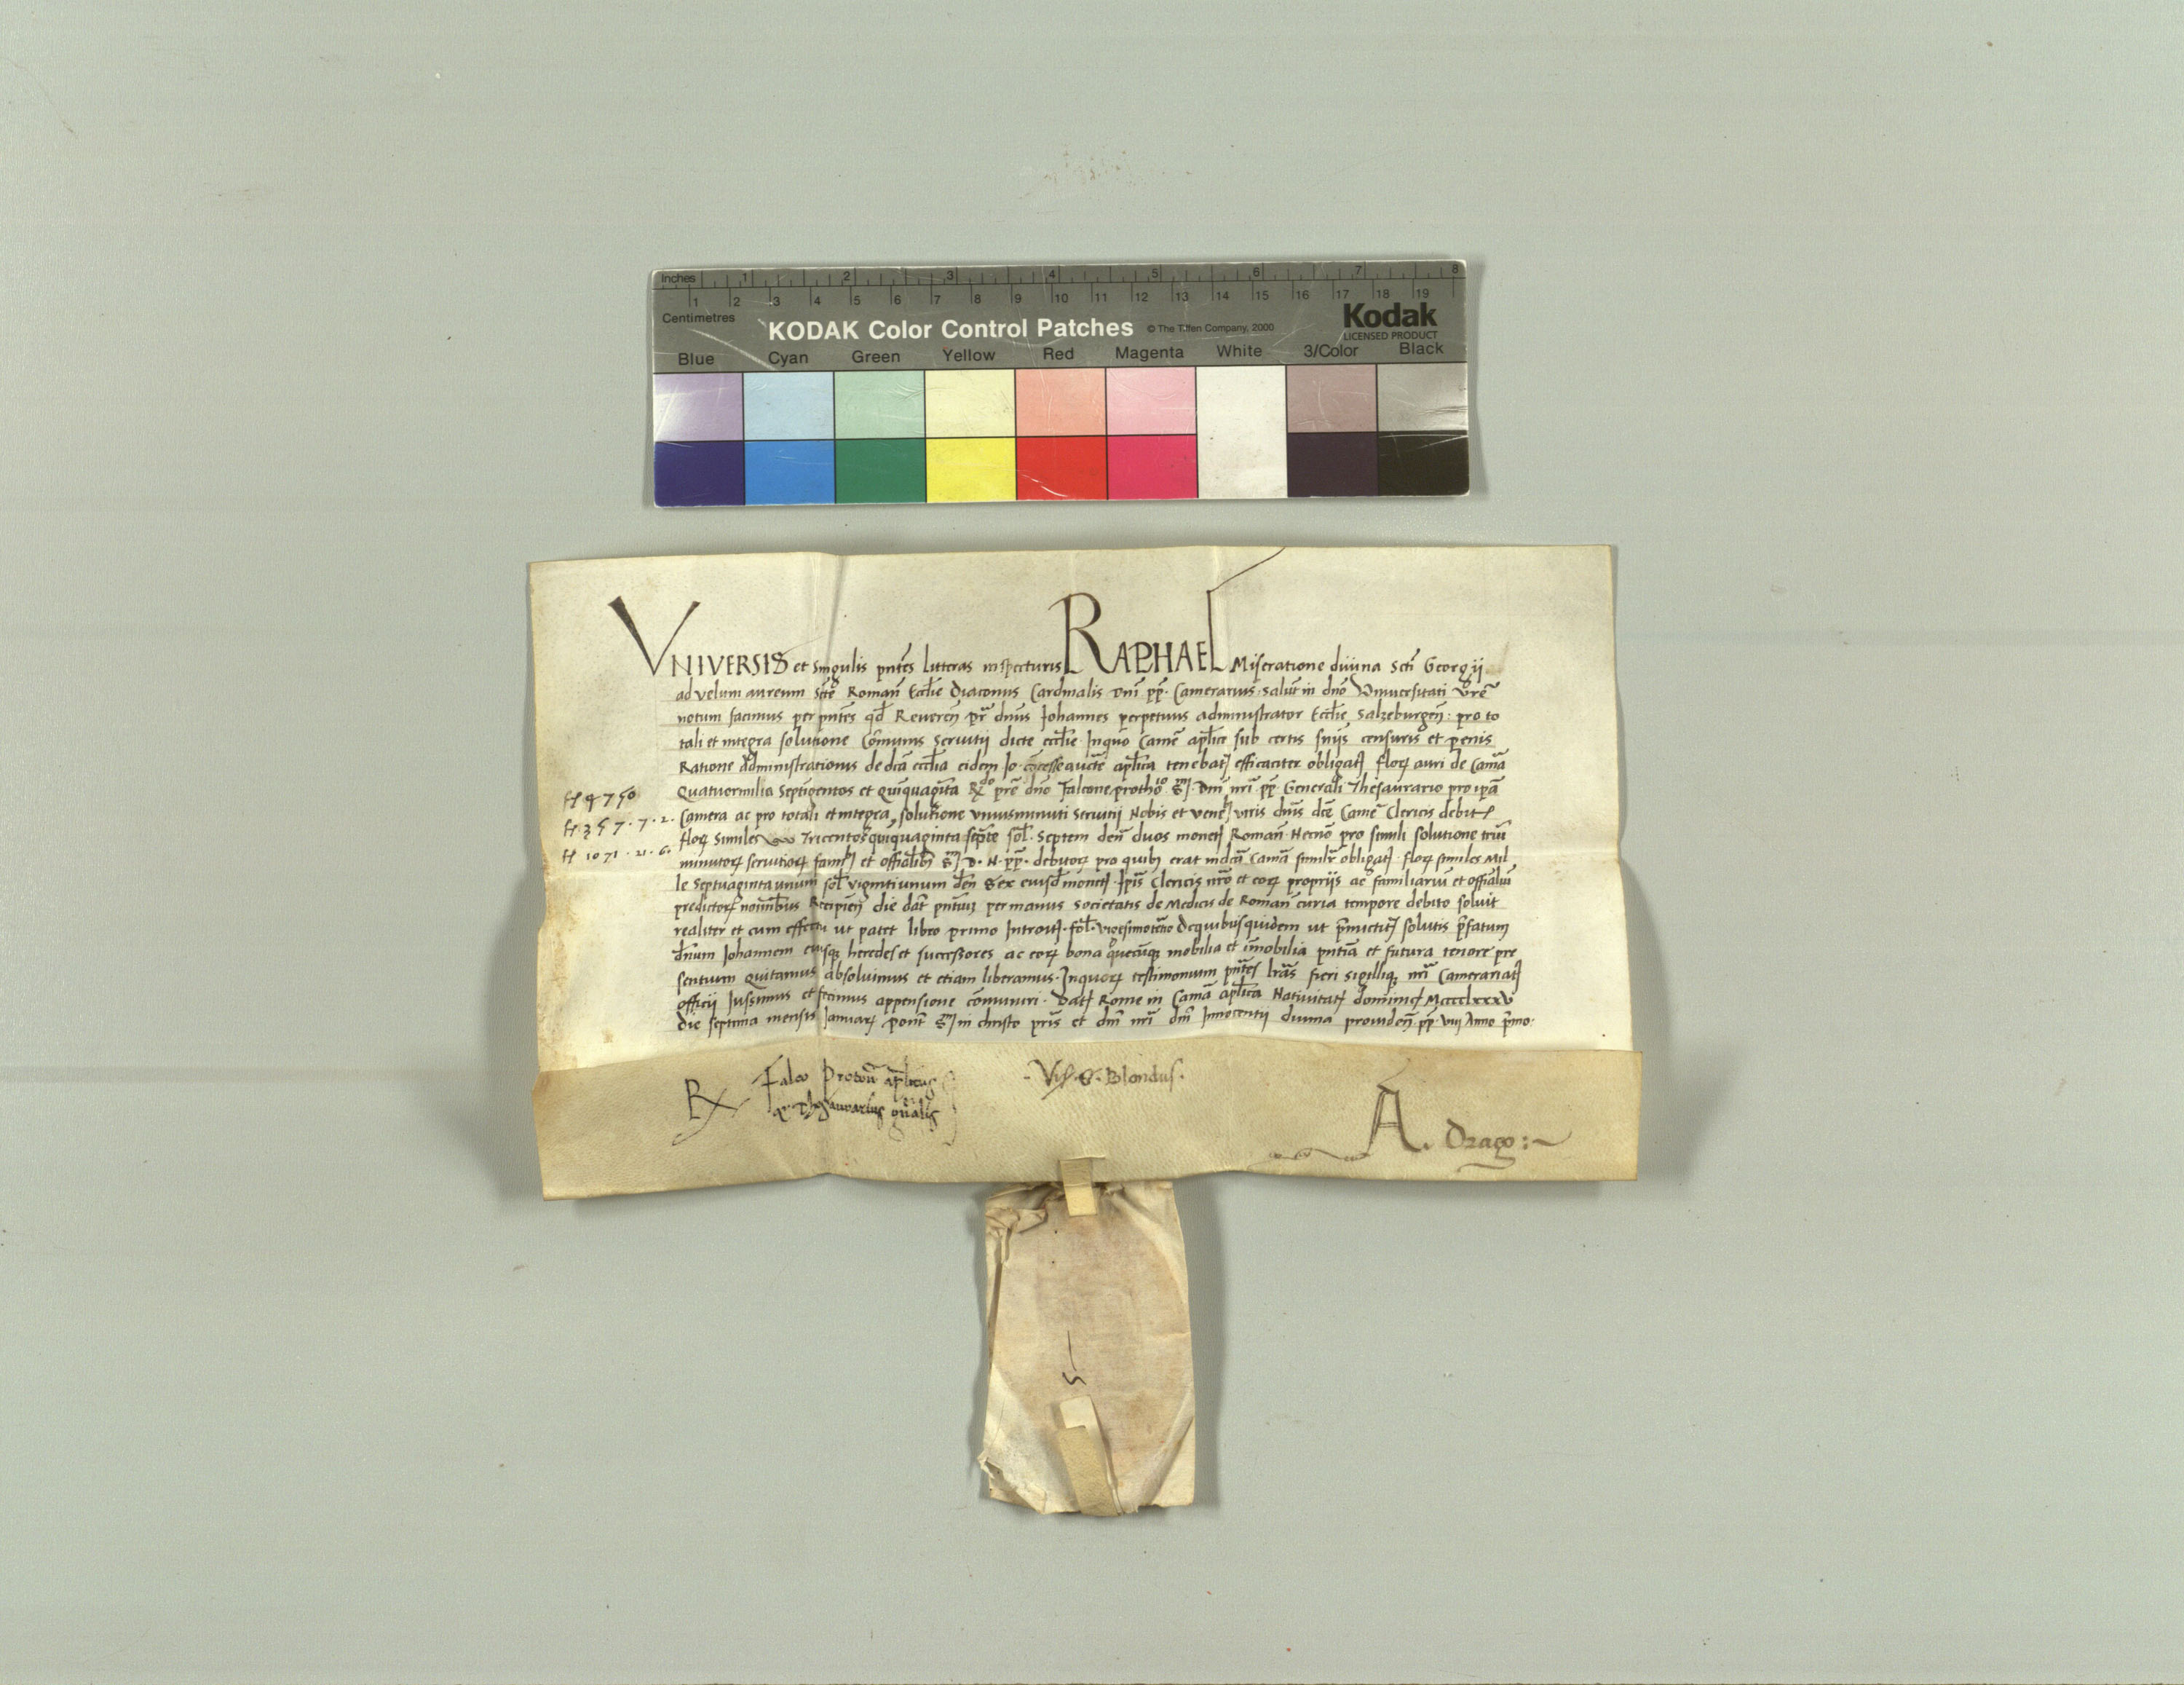 Inches 1 2 3 4 5 6 7 8
1 2 3 4 5 6 7 8 9 10 11 12 13 14 15 16 17 18 19
Centimetres
KODAK Color Control Patches © The Tiffen Company, 2000 Kodak
LICENSED PRODUCT
Blue Cyan Green Yellow Red Magenta White 3/Color Black
VNIVERSIS et singulis pntes litteras inspecturis RAPHAEL Miseratione divina Scti Georgij
ad velum aureum Scte Roman Ecclie Diaconus Cardinalis Dni pp. Camerarius salut in dno Universitati vre
notum facimus per pntes qd Reveren pr dnus Johannes perpetuus administrator Ecclie Salzeburgen. pro to
tali et integra solutione Comunis Servitij dicte ecclie in quo Came aplice sub certis snijs censuris et penis
Ratione administrationis de dca ecclia eidem Jo. concesse aucte aplica tenebat efficaciter obligat flor auri de Cama
Quatuormilia Septigentos et Quinquaginta Rdo pre dno Falcone protho Smi Dni nri pp Generali Thesaurario pro ipa
ff 4750
Camera ac pro totali et integra solutione unius minuti Servitij Nobis et vene viris dnis dce Came Clericis debit
ff 357.7.2.
flor Similes Tricentos quiquaginta septe sol. Septem den duos monet Roman. Necno pro simili solutione triu
ff 1071.21.6.
minutor servitior famil et offialibz Smi D. N. pp. debitor pro quibz erat in dca Cama similr obligat. flor similes Mil
le Septuaginta unum sol vigintiunum den Sex eiusd monet. Ipis Clericis nro et eor proprijs ac familiariu et offialiu
predictor noinibus Recipien die dat pntiuz per manus Societatis de Medicis de Roman curia tempore debito solvit
realiter et cum effectu ut patet libro primo Introit. fol. vigesimotertio De quibus quidem ut pmictit solutis pfatum
dnum Johannem eiusqz heredes et successores ac eor bona quecumqz mobilia et imobilia pntia et futura tenore pre
sentium Quitamus absolvimus et etiam liberamus. In quor testimonium pntes lras fieri sigilliqz nri Camerariat
officij Jussimus et fecimus appensione comuniri. Dat Rome in Cama aplica Nativitat dominice Mcccclxxxv
die septima mensis Januarij Pont Smi in christo pris et dni nri dni Innocentij divina providen. pp. viij Anno pmo.
Rx Falco Proton aplicus
Thesaurarius gnalis
Vis. G. Blondus.
A. Drago:~